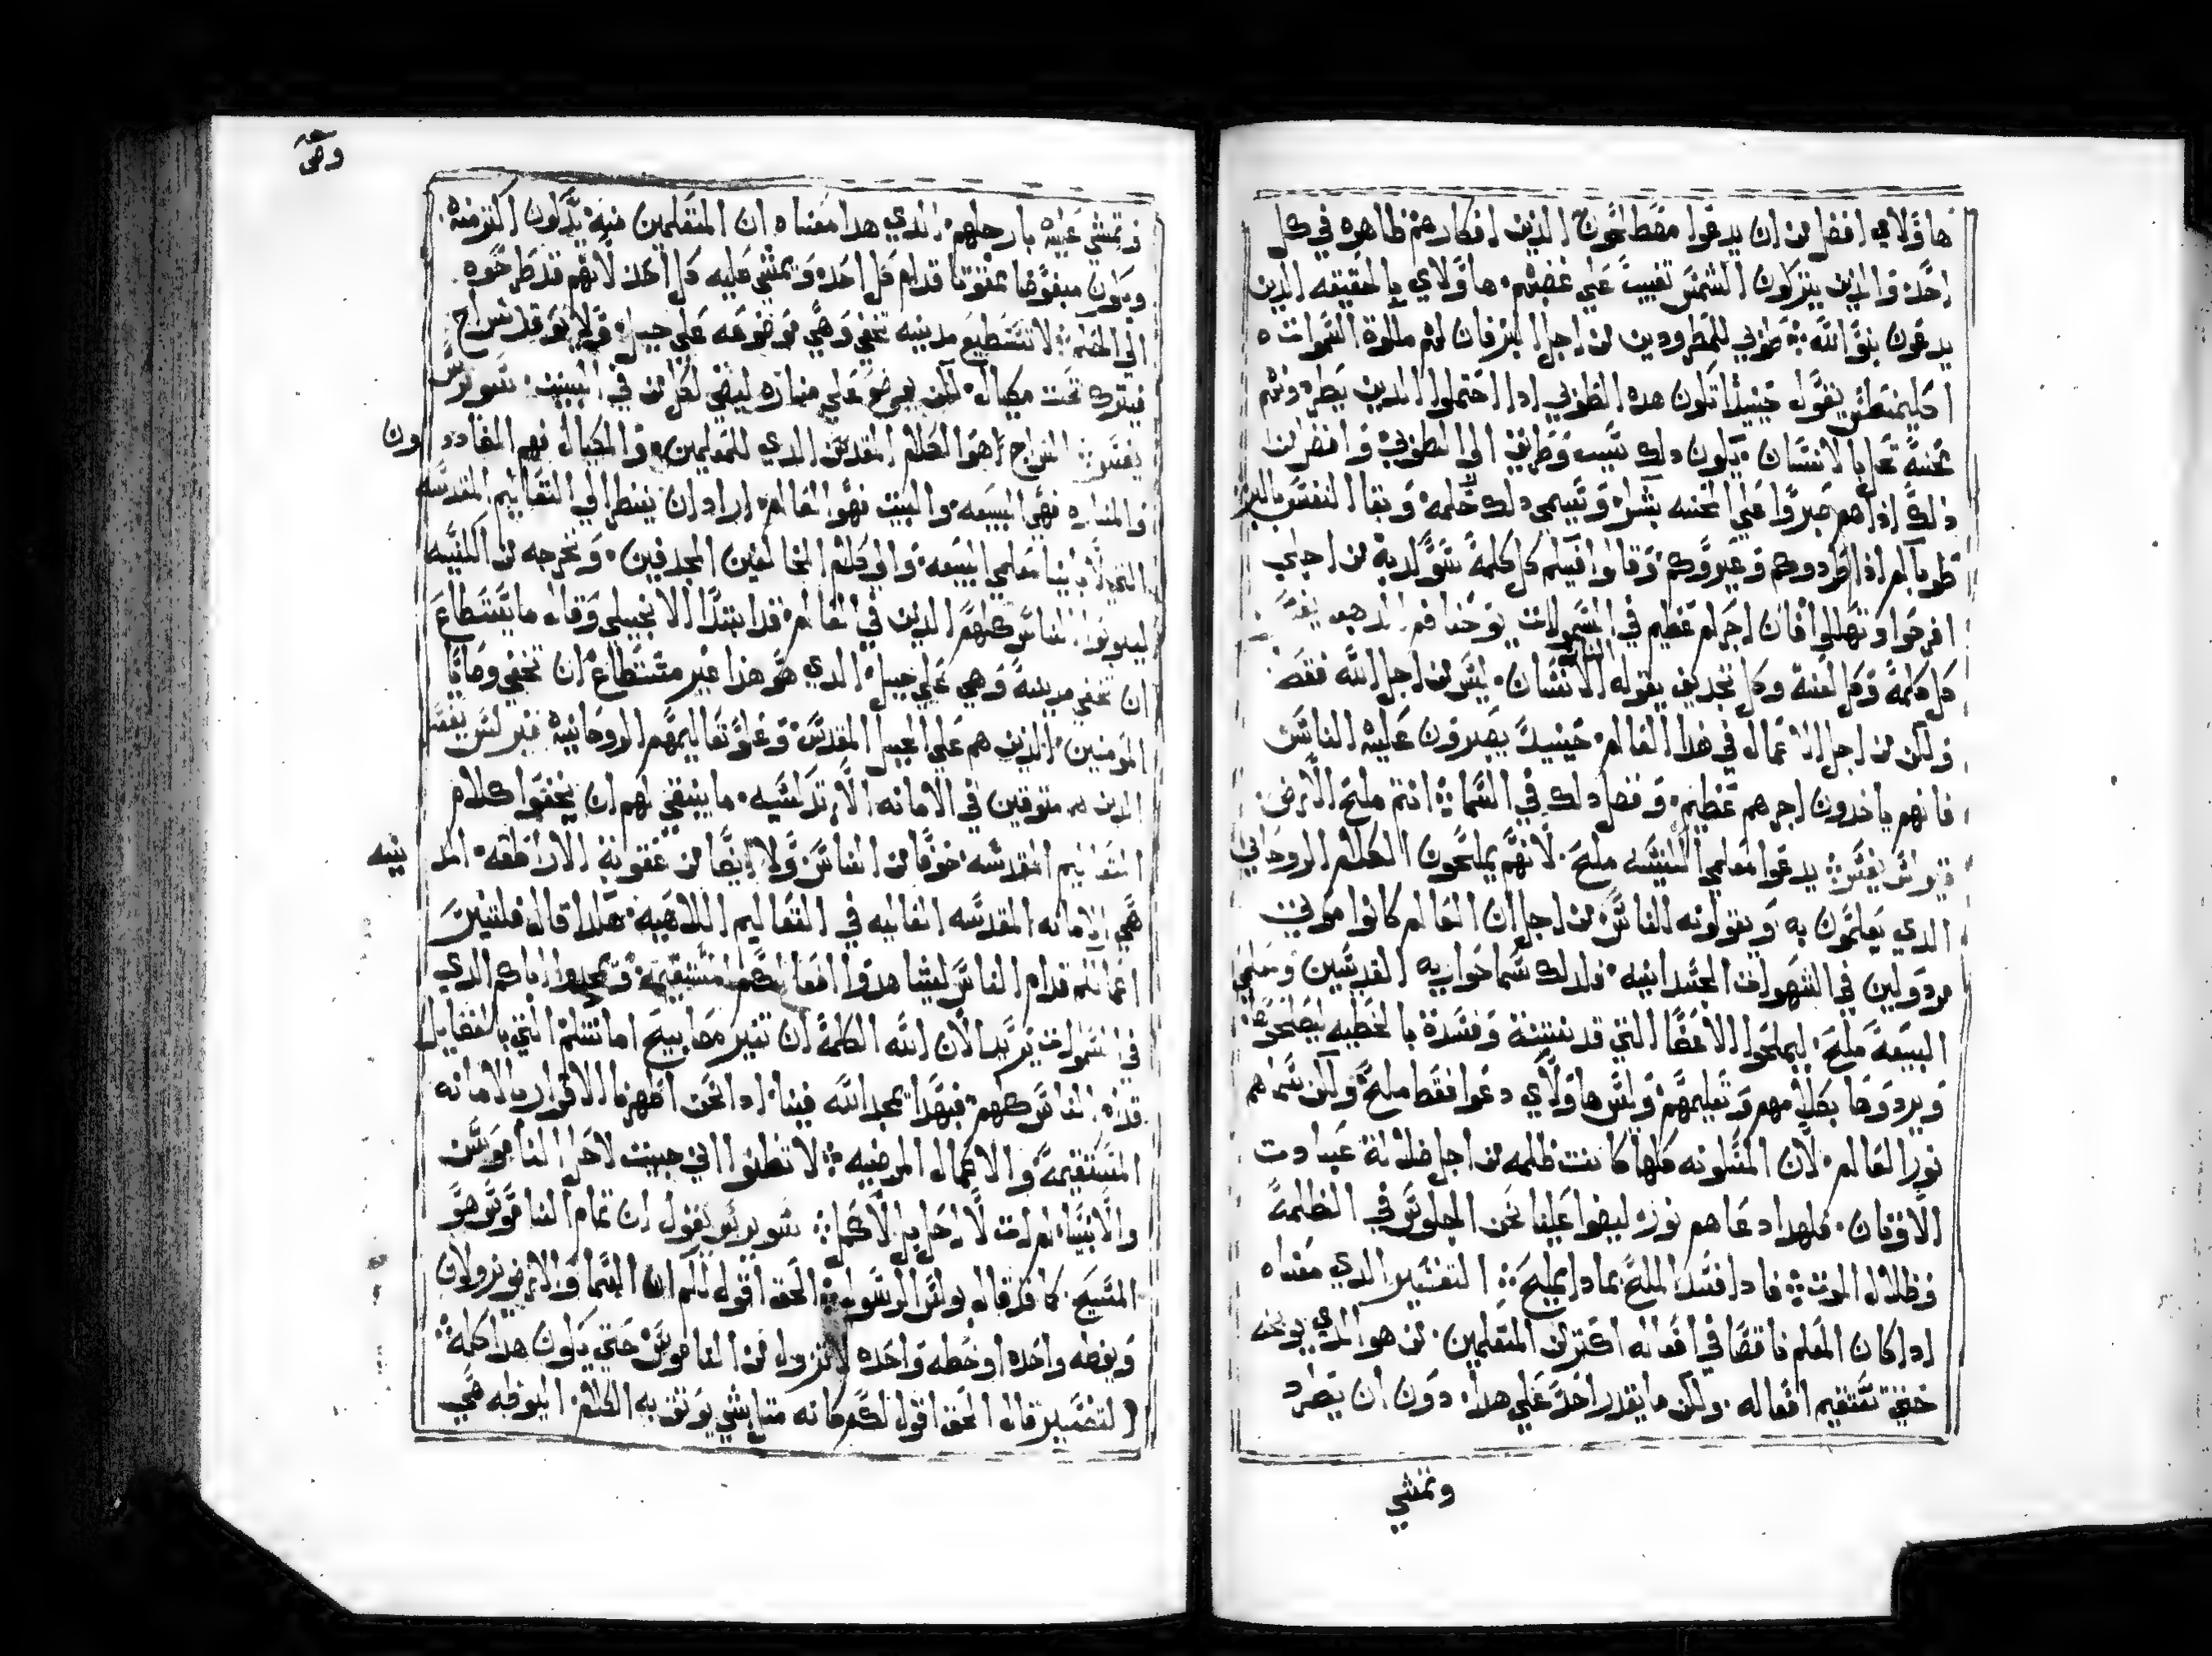 هاولاي افضل من ان يدعوا مصطلحون الذين افكارهم ظاهره في كل
احد والذين يتركون الشمس تغيب علي غضبهم هاولاي بالحقيقه الذين
يدعون بنو الله طوبي للمطرودين من اجل البر فان لهم ملكوة السموات
يقول حينيذ تكون هده الطوبي ادا احتملوا الدين يطردونهم
محنة تحل بالانسان يكون دلك سبب وطريق الي الطوبي وافضل من
ذلك اذا هم صبروا علي المحنه بشر ويسمي دلك حلمه وبقا النفس بالبر
طوباكم اذا طردوكم وعيروكم وقالوا فيكم كل كلمة سو كدبة من اجلي
افرحوا وتهللوا فان اجركم عظيم في السموات يوحنا فم الدهب يفسر
كل كلمة وكل لعنة وكل تجديف يقوله الانسان ليس من اجل الله فقط
ولكن من اجل الاعمال في هدا العالم حينيد يصبرون عليه الناس
فانهم ياخدون اجرهم عظيم وفضل دلك في السما انتم ملح الارض
يفسر يدعوا معلمي الكنيسه ملح لانهم يملحون الكلام الروحاني
الدي يعلمون به ويقولونه الناس من اجل ان العالم كانوا موتي
مردولين في الشهوات الجسدانيه فلدلك سما حواريه القديسين ومعلمي
البيعة ملح ليملحوا الاعضا التي قد نتنة وفسدة بالخطيه ليصلحوها
ويردوها بكلامهم وتعليمهم وليس هاولاي دعوا فقط ملح ولكن سماهم
نور العالم لان المسكونه كلها كانت ظلمه من اجل ضلالة عبادت
الاوثان فلهدا دعاهم نور ليضوا علينا نحن الجلوس في الظلمة
وظلال الموت فادا فسد الملح بمادا يملح التفسير الدي معناه
ادا كان المعلم ناقصا في افعاله اكتر من المتعلمين من هو الدي يوبخه
حتي تستقيم افعاله ولكن ما يقدر احد علي هدا دون ان يطرد
وتمشي
وتمشي عليه بارحلهم الدي هدا معناه ان المتعلمين منه يكون اكترمنه
ويكون مبغوضا ممقوتا قدام كل احد ويمشي عليه كل احد لانهم قد طرحوه
الي الخارج لا تستطيع مدينه تخفي وهي موضوعه علي جبل ولا يوقد سراج
فيترك تحت مكيال لكن يوضع علي مناره ليضي لكل من في البيت
يفسر السراج هو الكلام المقدس الدي للمعلمين والمكيال فهم المعاددون
والمناره فهي البيعه والبيت فهو العالم اراد ان ينظر الي التعاليم المقدسه
التي لابينا معلمي البيعه وان يكلم المخالفين المجدفين ونخرجه من الكنيسه
ليكونوا الناس كلهم الدين في العالم قد ابتدا الانجيلي وقال ما يستطاع
ان تخفي مدينة وهي علي جبل الدي هو هدا غير مستطاع ان تخفي وصايا
المومنين الذين هم علي الجبل المقدس وعلو تعاليمهم الروحانيه
متوقين في الامانه الارتدكسيه ما ينبغي لهم ان يخفوا كلام
التعاليم المقدسه خوفا من الناس ولا ايضا من عقوبة الاراطقه المدينه
هي الامانه المقدسه العاليه في التعاليم اللاهيه هكدا قال فلتنير
اعمالكم قدام الناس ليشاهدوا افعالكم المستقيمة ويمجدوا اباكم الدي
في السموات يريد الان الله الكلمة ان تنير مصابيح امانتكم التي بالفضايل
قدام الناس كلهم فبهدا يمجد الله فينا ادا نحن اظهرنا الاقرار بالامانه
المستقيمة والاعمال المرضيه لا تظنوا اني جيت لاحل الناموس
والانبيا لم ات لاحل بل لاكمل يقول ان تمام الناموس هو
المسيح كما قد قال بولس الرسول الحق اقول لكم ان السما والارض يزولان
ونقطه واحده او خطه واحده لا تزول من الناموس حتي يكون هدا كله
التفسير قال الحق اقول لكم فانه مثل شي يوثق به الكلام النقطه هي